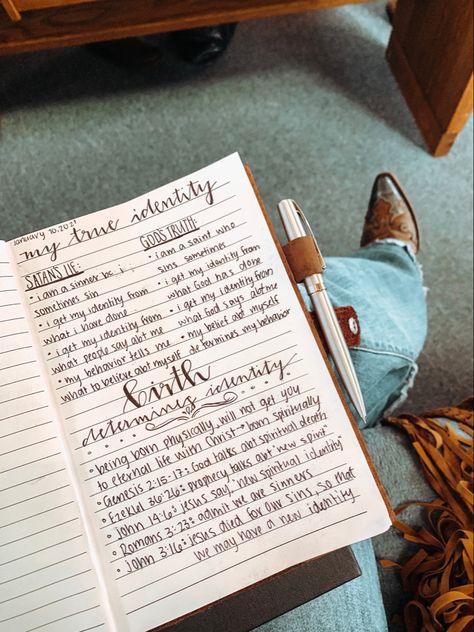 January 10.2021
my true identity
SATANS LIE:
• i am a sinner bc i
sometimes sin
• i get my identity from
what i have done
• i get my identity from
what people say abt me
• my behavior tells me
what to believe abt myself
GODS TRUTH:
• i am a saint who
sins sometimes
• i get my identity from
what God has done
• i get my identity from
what God says abt me
• my belief abt myself
determines my behavior
birth
determines identity.
• being born physically, will not get you
to eternal life with Christ → born spiritually
• Genesis 2:15-17: God talks abt spiritual death
• Ezekiel 36:26: prophecy talks abt "new spirit"
• John 14:6: Jesus say, "new spiritual identity"
• Romans 3:23: admit we are sinners
• John 3:16: Jesus died for our sins, so that
we may have a new identity